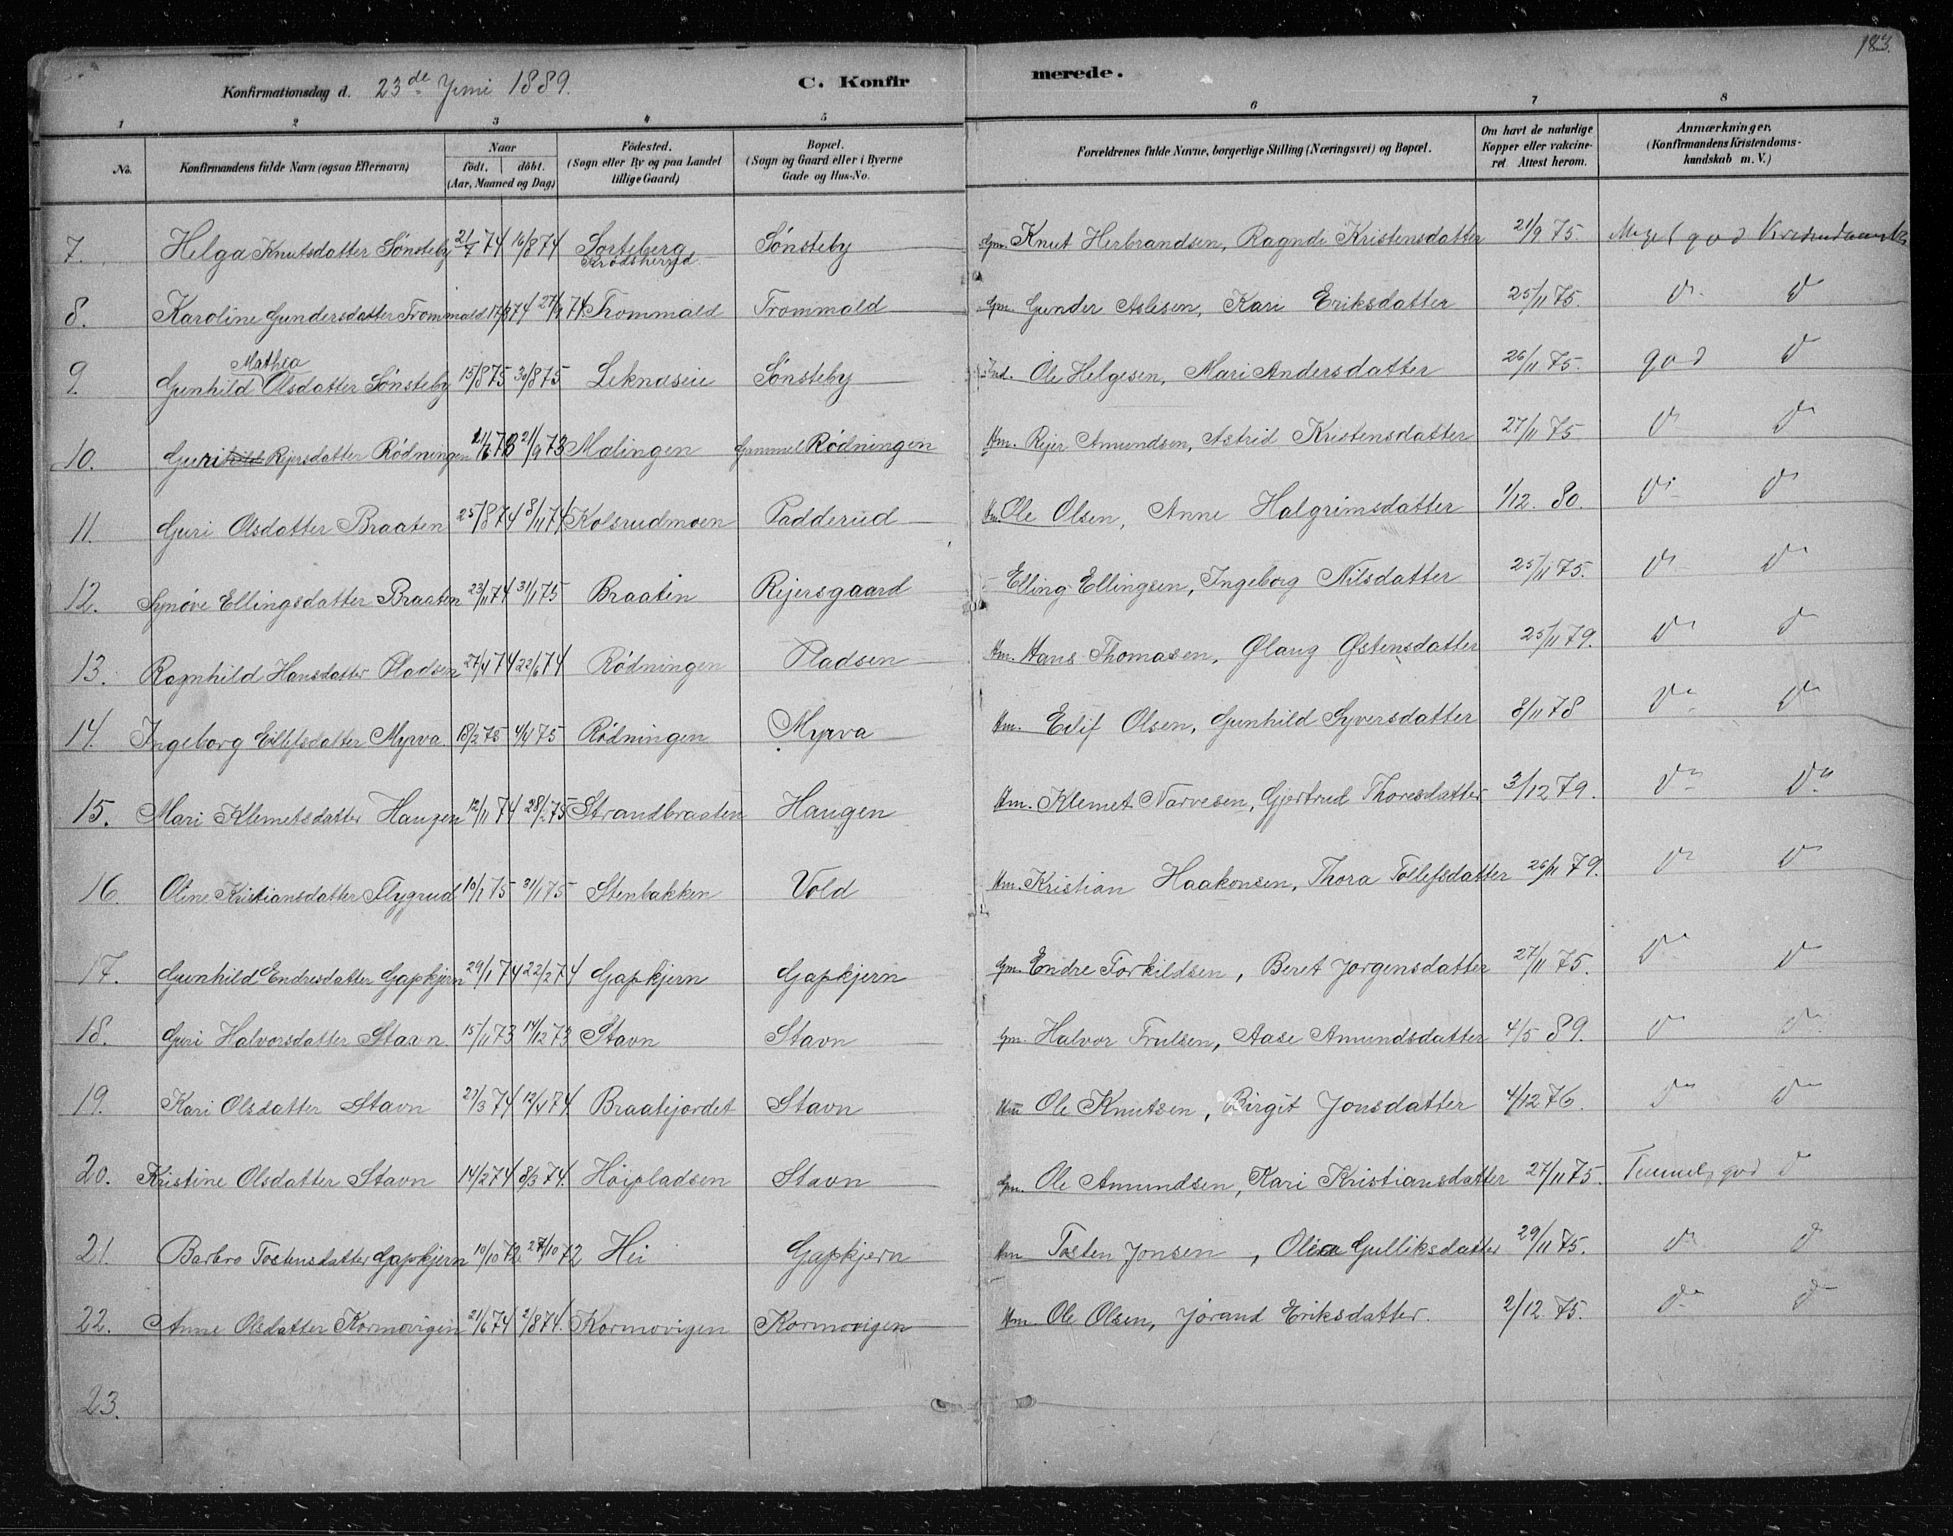 183.
Konfirmationsdag d. 23de Juni 1889. C. Konfirmerede.
1 2 3 4 5 6 7 8
No. Konfirmandens fulde Navn (ogsaa Efternavn) Naar født. døbt. (Aar, Maaned og Dag) Fødested. (Sogn eller By og paa Landet tillige Gaard) Bopæl. (Sogn og Gaard eller i Byerne Gade og Hus-No. Forældrenes fulde Navne, borgerlige Stilling (Næringsvei) og Bopæl. Om havt de naturlige Kopper eller vakcineret. Attest herom. Anmærkninger. (Konfirmandens Kristendomskundskab m. V.)
7. Helga Knutsdatter Sønsteby 21/7 74 16/8 74 Sorteberg Krødsherred Sønsteby Gm. Knut Herbrandsen, Ragnde Kristensdatter 21/9 75. Meget god
8. Karoline Gundersdatter Trommald 27/9 74 Trommald Trommald Gm. Gunder Aslesen, Kari Eriksdatter 25/11 75. D D
9. Gunhild Mathea Olsdatter Sønsteby 15/8 75 30/8 75 Leknæseie Sønsteby Ind. Ole Helgesen, Mari Andersdatter 26/11 75. god D
10. Guri Rejersdatter Rødningen 21/9 73 Malingen Gammel Rødningen Hm. Rejer Amundsen, Astrid Kristensdatter 27/11 75 D D
11. Guri Olsdatter Braaten 25/8 74 8/11 74 Kolsrudmoen Padderud Hm. Ole Olsen, Anne Halgrimsdatter 1/12 80. D D
12. Synøve Ellingsdatter Braaten 23/11 74 31/1 75 Braaten Rejersgaard Elling Ellingsen, Ingeborg Nilsdatter 25/11 75. D D
13. Ragnhild Hansdatter Pladsen 27/4 74 22/6 74 Rødningen Pladsen Hm. Hans Thomasen, Olaug Østensdatter 25/11 79. D D
14. Ingeborg Eilifsdatter Myrva 18/2 75 4/4 75 Rødningen Myrva Hm. Eilif Olsen, Gunhild Syversdatter 8/11 78 D D
15. Mari Klemetsdatter Haugen 12/11 74 28/2 75 Strandbraaten Haugen Hm. Klemet Narvesen, Gjertrud Thoresdatter 3/12 79. D D
16. Oline Kristiansdatter Flygrud 10/1 75 31/1 75 Stenbakken Vold Hm. Kristian Haakonsen, Thora Tollefsdatter 26/11 79. D D
17. Gunhild Endresdatter Gapkjern 29/1 74 22/2 74 Gapkjern Gapkjern Gm. Endre Torkildsen, Beret Jorgensdatter 27/11 75. D D
18. Guri Halvorsdatter Stavn 15/11 73 14/12 73 Stavn Stavn Gm. Halvor Trulsen, Aase Amundsdatter 4/5 89. D D
19. Kari Olsdatter Stavn 27/3 74 12/4 74 Braatejordet Stavn Hm Ole Knutsen, Birgit Jonsdatter 4/12 76. D D
20. Kristine Olsdatter Stavn 14/2 74 8/3 74. Høipladsen Stavn Gm. Ole Amundsen, Kari Kristiansdatter 27/11 75. Temmelig god D
21. Barbro Tostensdatter Gapkjern 10/10 72 27/10 72 Hei Gapkjern Hm Tosten Jonsen, Olea Gulliksdatter 29/11 75. D D
22. Anne Olsdatter Kormovigen 21/6 74 2/8 74. Kormovigen Kormovigen Hm Ole Olsen, Jørand Eriksdatter. 2/12 75. D D
23.